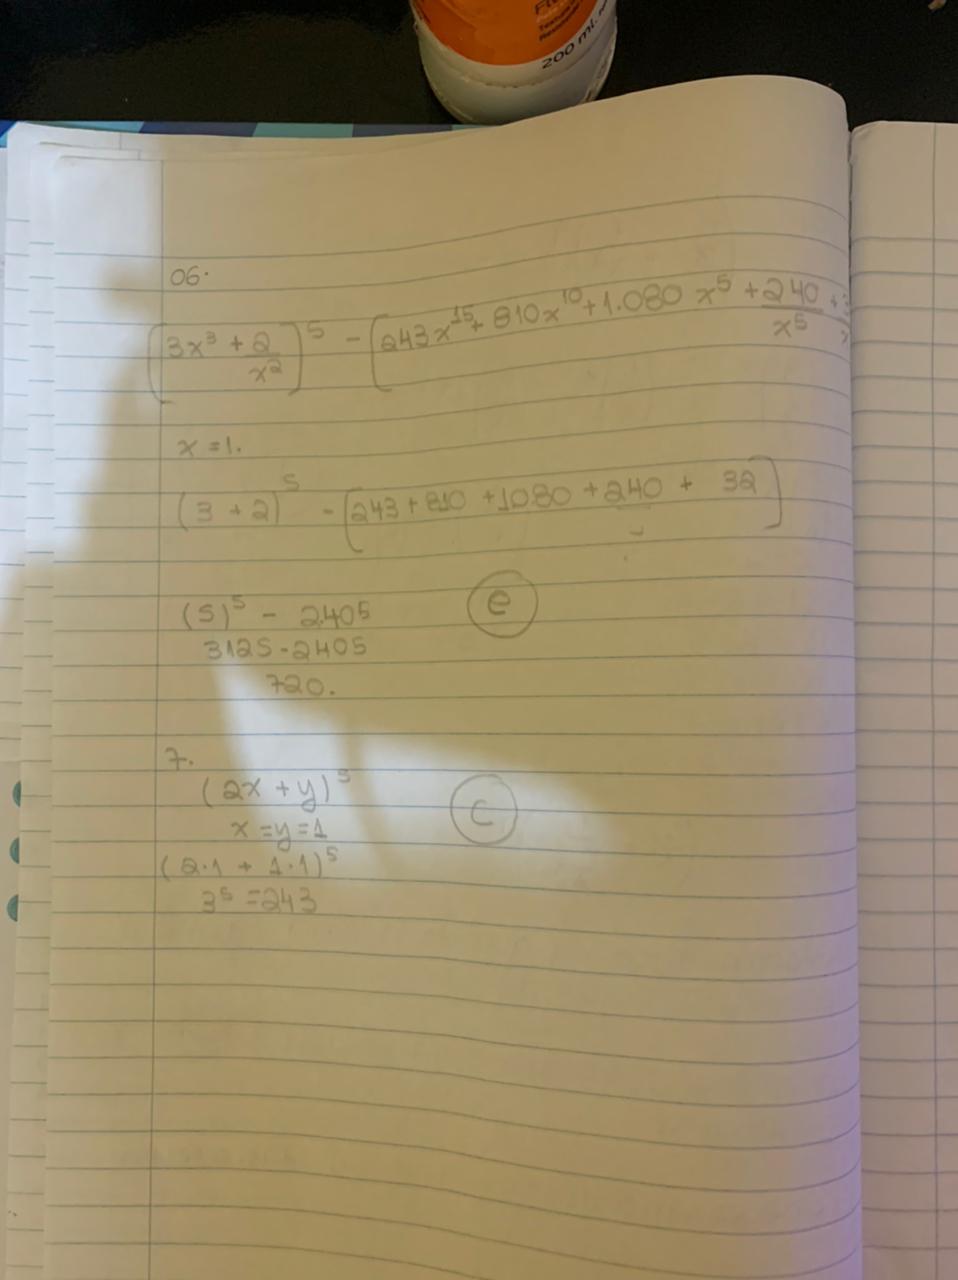 200 ml.
06.
(3x³ + 2/x²)⁵ - [243x¹⁵ + 810x¹⁰ + 1.080 x⁵ + 240/x⁵ +
x = 1.
(3 + 2)⁵ - [243 + 810 + 1080 + 240 + 32]
(5)⁵ - 2.405
e
3125 - 2405
720.
7.
(2x + y)⁵
c
x = y = 1
(2·1 + 1·1)⁵
3⁵ = 243